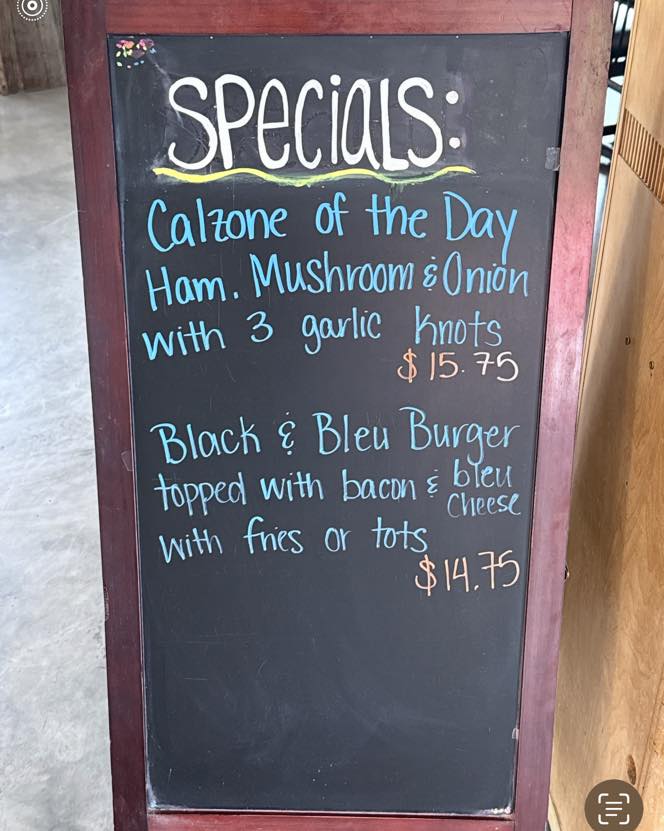 SPeciaLS:
Calzone of the Day
Ham. Mushroom & Onion
with 3 garlic knots
$15.75
Black & Bleu Burger
topped with bacon & bleu cheese
with fries or tots
$14.75